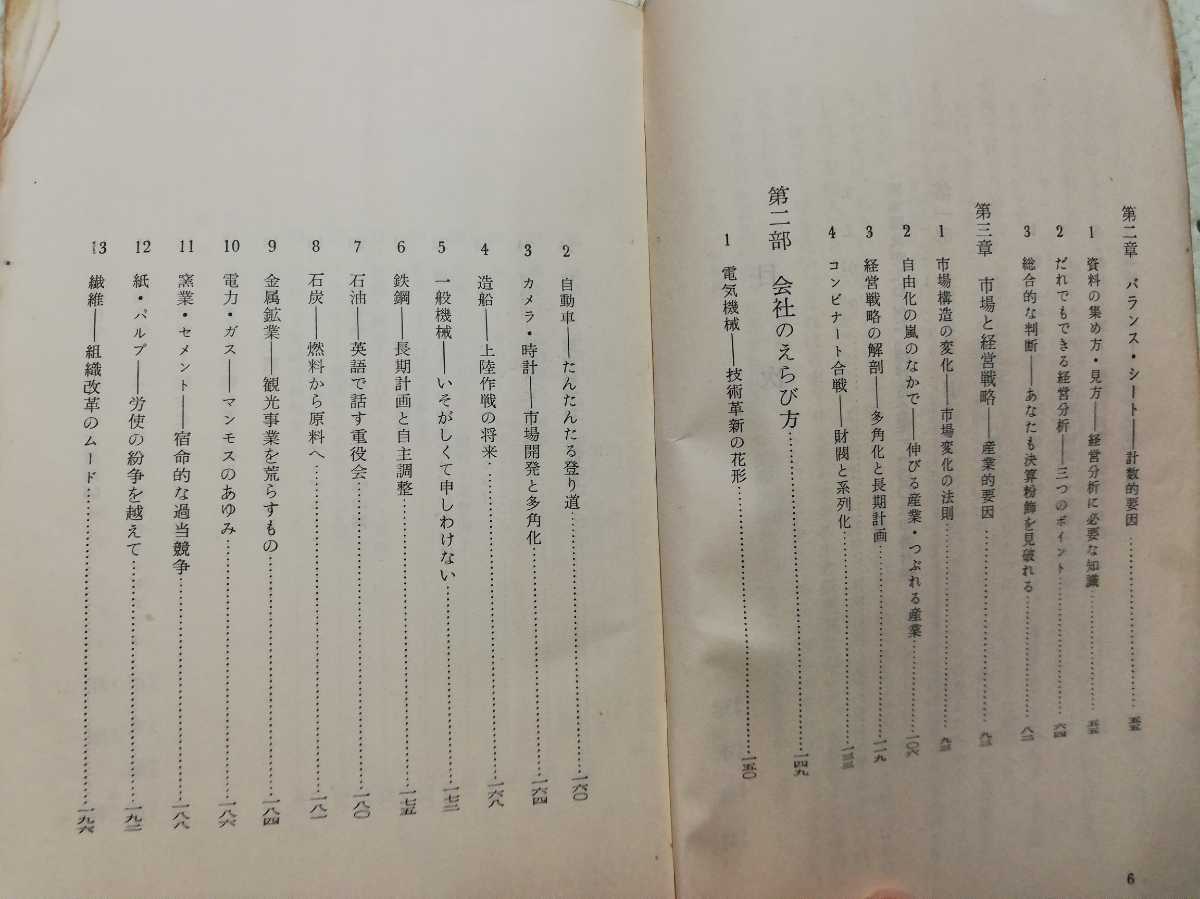 第二章 バランス・シート——計数的要因……………………五五
1 資料の集め方・見方——経営分析に必要な知識……………………五五
2 だれでもできる経営分析——三つのポイント……………………六四
3 総合的な判断——あなたも決算粉飾を見破れる……………………八二
第三章 市場と経営戦略——産業的要因……………………九三
1 市場構造の変化——市場変化の法則……………………九三
2 自由化の嵐のなかで——伸びる産業・つぶれる産業……………………一〇六
3 経営戦略の解剖——多角化と長期計画……………………一一九
4 コンビナート合戦——財閥と系列化……………………一三三
第二部 会社のえらび方……………………一四九
1 電気機械——技術革新の花形……………………一五〇
6
2 自動車——たんたんたる登り道……………………一六〇
3 カメラ・時計——市場開発と多角化……………………一六四
4 造船——上陸作戦の将来……………………一六八
5 一般機械——いそがしくて申しわけない……………………一七二
6 鉄鋼——長期計画と自主調整……………………一七五
7 石油——英語で話す重役会……………………一八〇
8 石炭——燃料から原料へ……………………一八一
9 金属鉱業——観光事業を荒らすもの……………………一八四
10 電力・ガス——マンモスのあゆみ……………………一八六
11 窯業・セメント——宿命的な過当競争……………………一八八
12 紙・パルプ——労使の紛争を越えて……………………一九二
13 繊維——組織改革のムード……………………一九六